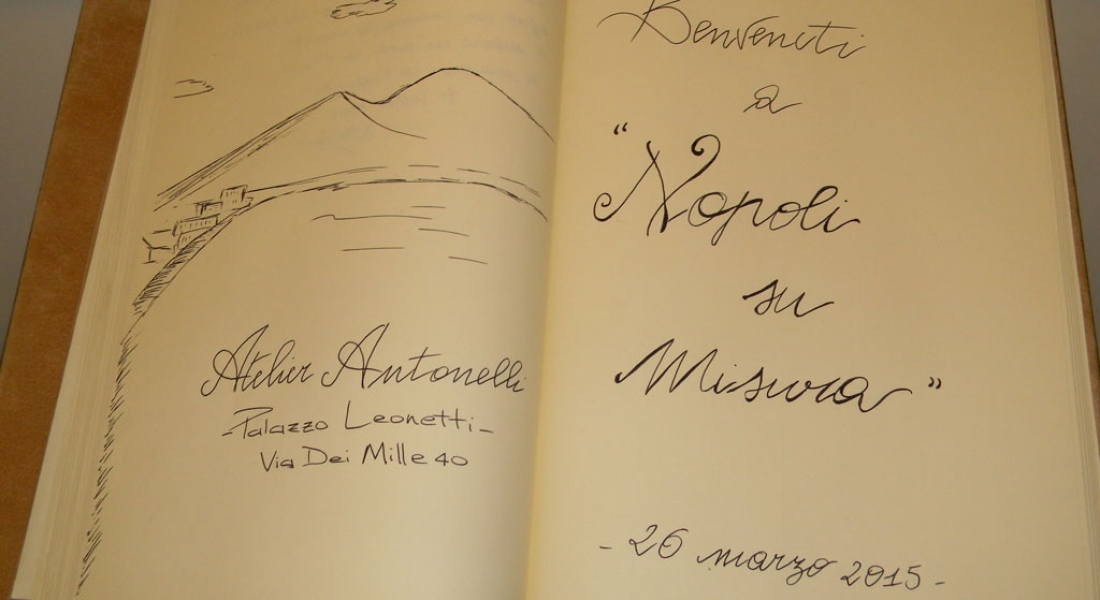 Atelier Antonelli
- Palazzo Leonetti -
Via Dei Mille 40
Benvenuti
a
"Napoli
su
Misura"
- 26 marzo 2015 -